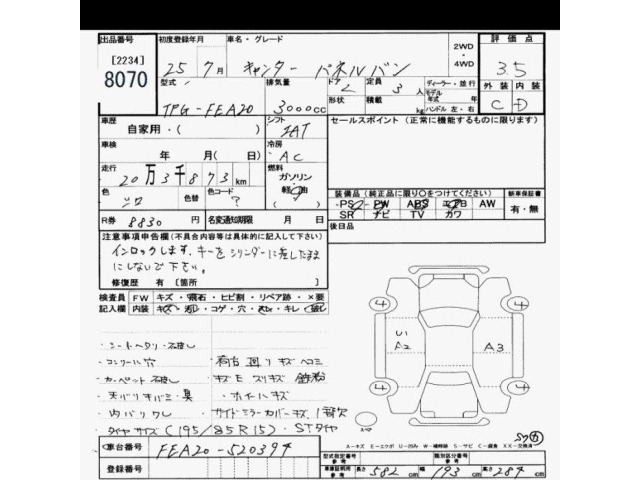 出品番号 初度登録年月 車名・グレード 2WD・4WD 評価点
[2234] 8070 25年7月 キャンター パネルバン 3.5
型式 排気量 ドア 2 定員 3人 ディーラー・並行 外装 内装
TPG-FEA20 3000cc 形状 積載 kg モデル年式 年 ハンドル 左・右 C D
車歴 シフト セールスポイント（正常に機能するものに限ります）
自家用・( ) IAT
車検 冷房
年 月(日) AC
走行 燃料
20万3千873km ガソリン
色 色替 色コード 軽油 装備品（純正品に限り○をつけてください） 新車保証書
シロ ? ( ) PS PW ABS エアB AW 有・無
SR ナビ TV カワ
R券 8830 名変通知期限 月 日 後日品
注意事項申告欄（不具合内容等は具体的に記入して下さい）
インロックします、キーをシリンダーに差したまま
にしないで下さい。
修復歴 有 [箇所 ]
検査員 FW キズ・飛石・ヒビ割・リペア跡・×要
記入欄 内装 キズ・汚レ・コゲ・穴・スレ・キレ・破レ
4 4
U1
A2 A3
・シートヘタリ・破レ
・コンソール穴 ・荷台回りキズヘコミ
・カーペット破レ キズEスリキズ
・天バリキバミ・臭 ・ホイールキズ
・内バリワレ ・サイドミラーカバーキズ、1部欠
・タイヤサイズ(195/85R15)・STタイヤ
4 4
スペア
A-キズ E-エクボ U-凹み W-補修跡 S-サビ C-腐食 XX-交換済
車台番号 FEA20-520394
型式指定番号 参考 類別区分番号 参考
登録番号 車両証明用 参考 長さ 582 cm 幅 193 cm 高さ 284 cm